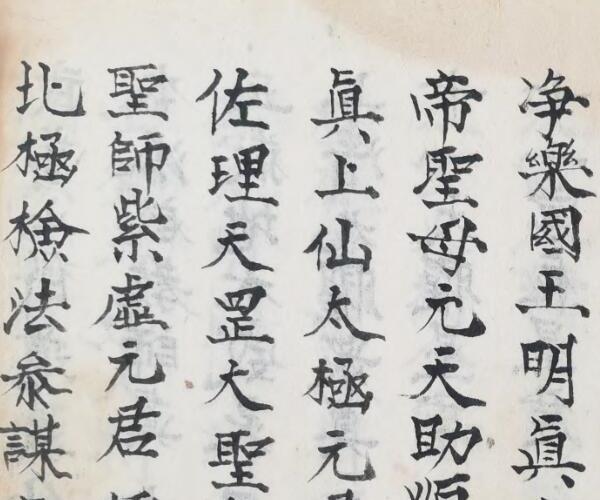 净樂國王明眞
帝聖母元天助順
眞上仙太極元
佐理天罡大聖
聖師紫虛元君
北極檢法叅謀